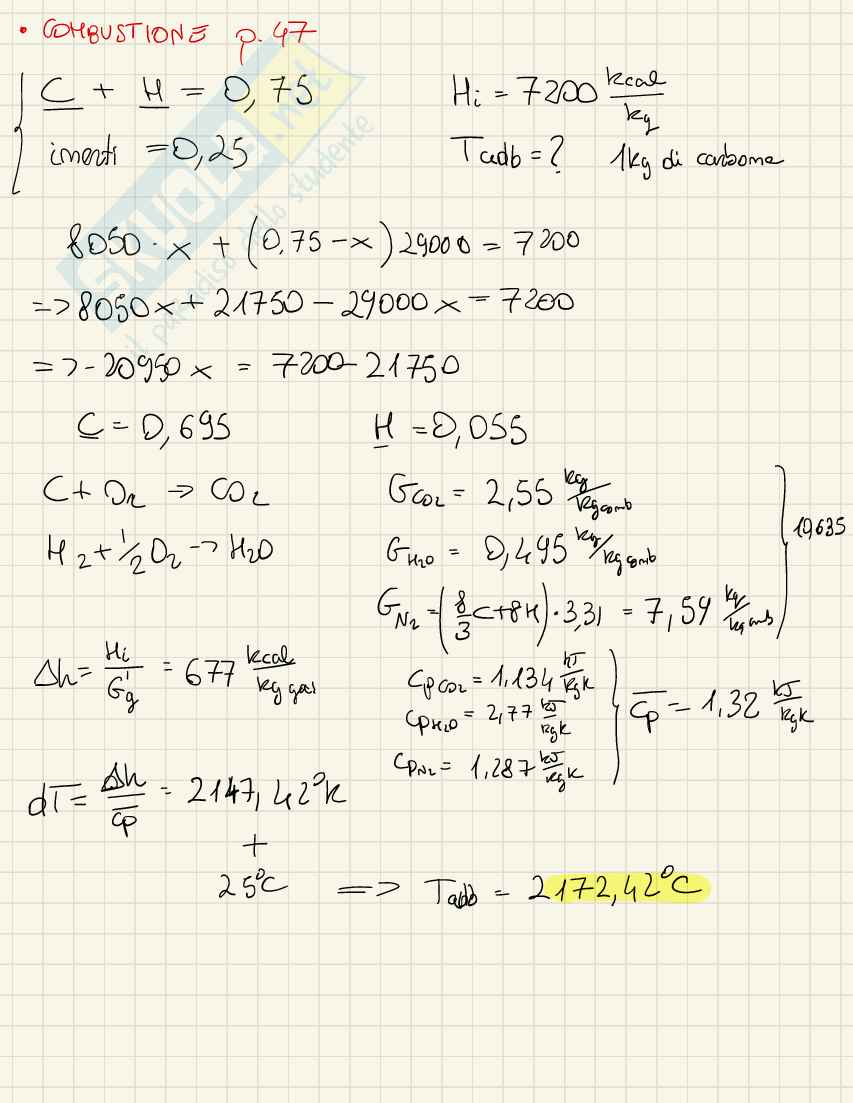 • COMBUSTIONE p.47
C + H = 0,75
inerti = 0,25
Hi = 7200 kcal/kg
Tadb = ? 1kg di carbone
8050 · x + (0,75 - x) 29000 = 7200
=> 8050x + 21750 - 29000x = 7200
=> - 20950 x = 7200 - 21750
C = 0,695 H = 0,055
C + O₂ → CO₂
H₂ + 1/2 O₂ → H₂O
G_CO₂ = 2,55 kg/kgcomb
G_H₂O = 0,495 kg/kgcomb
G_N₂ = (8/3 C + 8H) · 3,31 = 7,59 kg/kgcomb
10,635
Δh = Hi/G'g = 677 kcal/kg gas
Cp CO₂ = 1,134 kJ/kgK
Cp H₂O = 2,77 kJ/kgK
Cp N₂ = 1,287 kJ/kgK
Cp = 1,32 kJ/kgK
dT = Δh/Cp = 2147,42°K
+
25°C => Tadb = 2172,42°C
SKUOLA.net
il paradiso dello studente